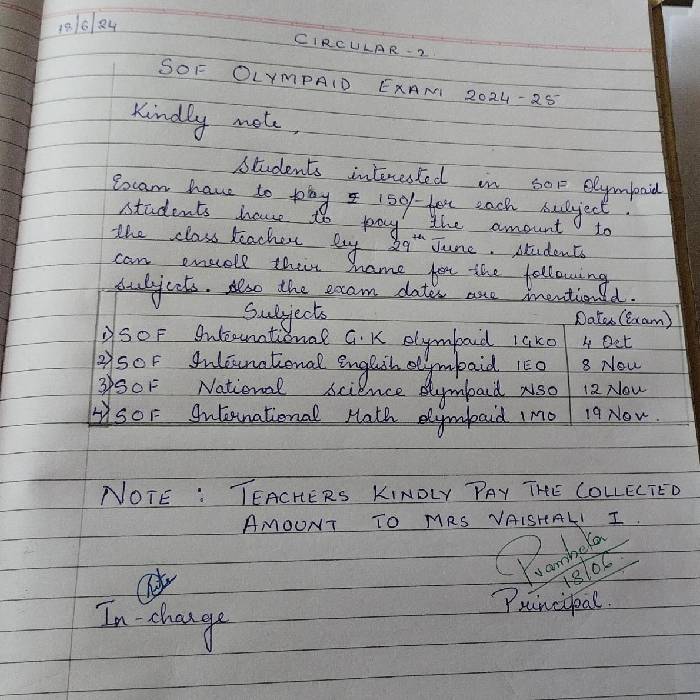 18/6/24
CIRCULAR - 2
SOF OLYMPAID EXAM 2024-25
Kindly note,
Students interested in SOF Olympaid
Exam have to pay ₹ 150/- for each subject.
Students have to pay the amount to
the class teacher by 29th June. Students
can enroll their name for the following
subjects. Also the exam dates are mentioned.
Subjects Dates (Exam)
1) SOF International G.K olympaid IGKO 4 Oct
2) SOF International English olympaid IEO 8 Nov
3) SOF National science olympaid NSO 12 Nov
4) SOF International Math olympaid IMO 19 Nov.
NOTE : TEACHERS KINDLY PAY THE COLLECTED
AMOUNT TO MRS VAISHALI I.
18/06
In-charge Principal.